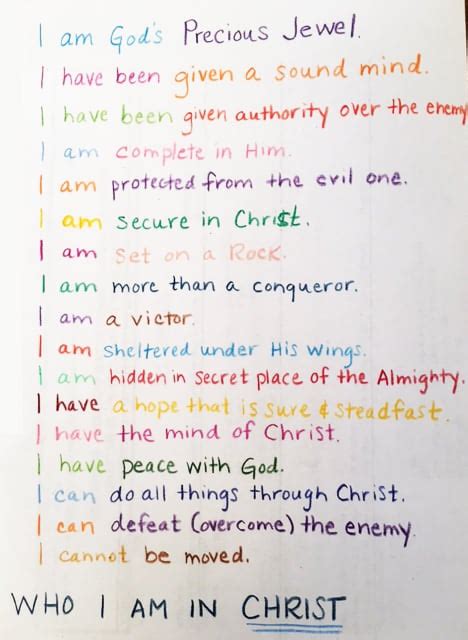 I am God's Precious Jewel.
I have been given a sound mind.
I have been given authority over the enemy
I am complete in Him.
I am protected from the evil one.
I am secure in Christ.
I am set on a Rock.
I am more than a conqueror.
I am a victor.
I am sheltered under His wings.
I am hidden in secret place of the Almighty.
I have a hope that is sure & steadfast.
I have the mind of Christ.
I have peace with God.
I can do all things through Christ.
I can defeat (overcome) the enemy.
I cannot be moved.
WHO I AM IN CHRIST